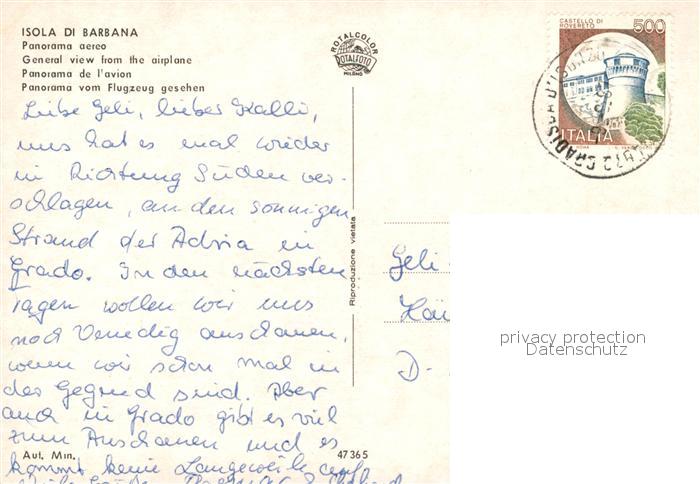 ISOLA DI BARBANA
Panorama aereo
General view from the airplane
Panorama de l'avion
Panorama vom Flugzeug gesehen
ROTALCOLOR
ROTALFOTO
MILANO
CASTELLO DI
ROVERETO
500
ITALIA
ROMA
Liebe Geli, lieber Kalli,
uns hat es mal wieder
in Richtung Süden ver-
schlagen, an den sonnigen
Strand der Adria in
Grado. In den nächsten
Tagen wollen wir uns
noch Venedig anschauen,
wenn wir schon mal in
der Gegend sind. Aber
auch in Grado gibt es viel
zum Anschauen und es
kommt keine Langeweile auf.
Viele Grüße
Riproduzione vietata
Geli
D-
Aut. Min.
47365
privacy protection
Datenschutz